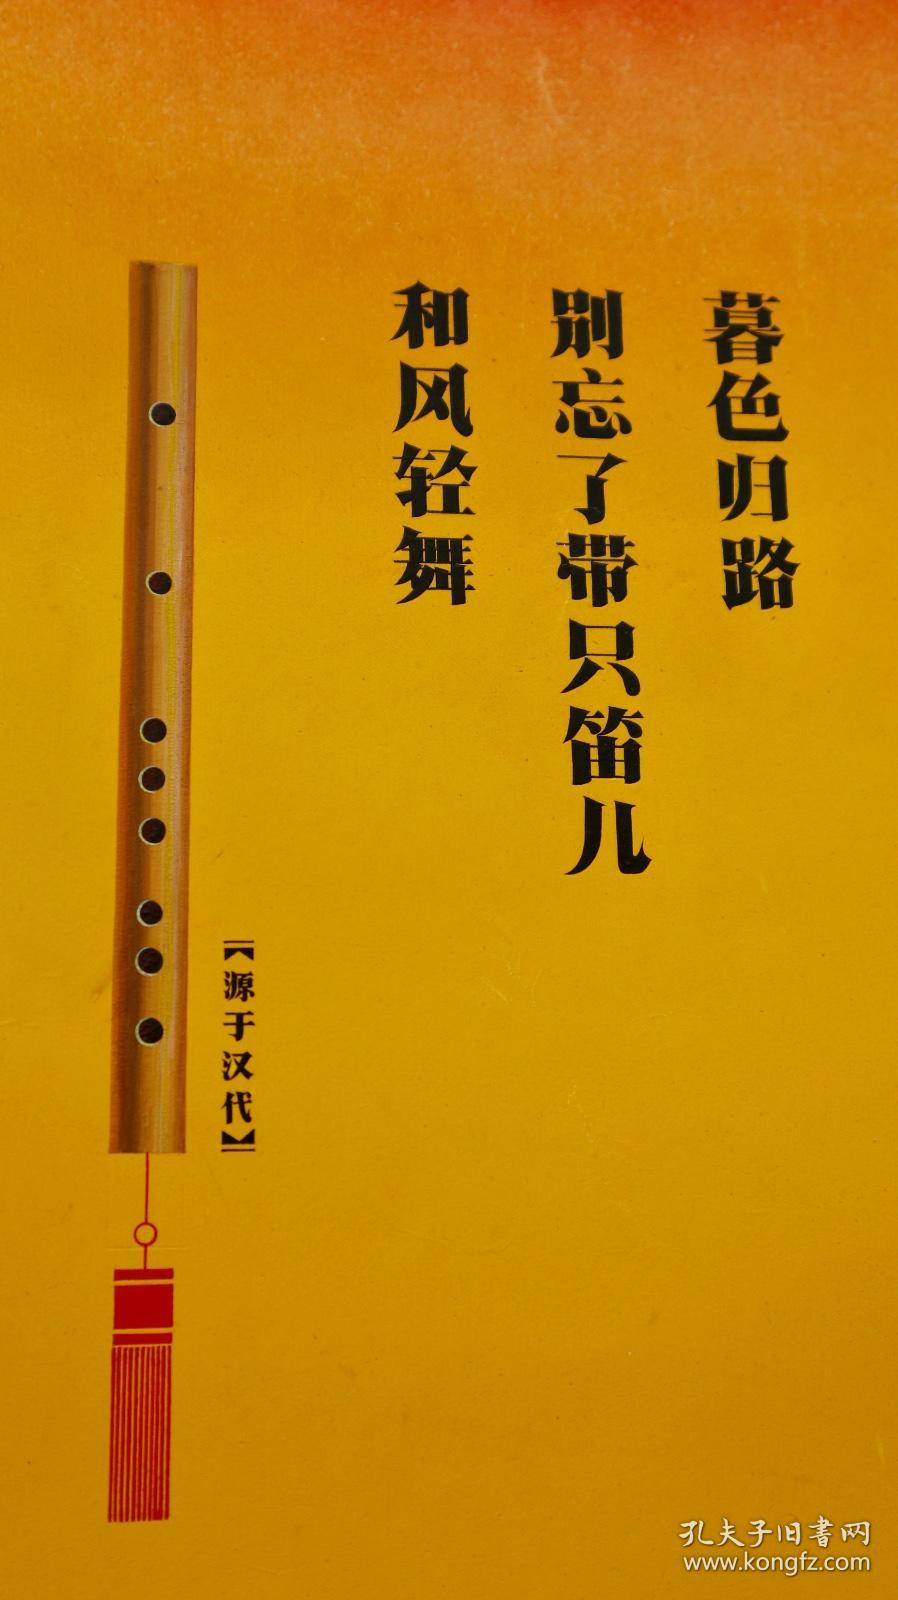 暮色归路
别忘了带只笛儿
和风轻舞
【源于汉代】
孔夫子旧書网
www.kongfz.com